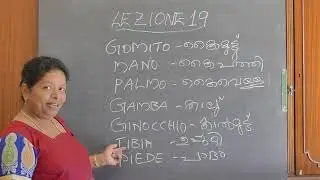 LEZIONE 19
GOMITO - കൈമുട്ട്
MANO - കൈപത്തി
PALMO - കൈവെള്ള
GAMBA - കാല്
GINOCCHIO - കാൽമുട്ട്
TIBIA -
PIEDE - പാദം